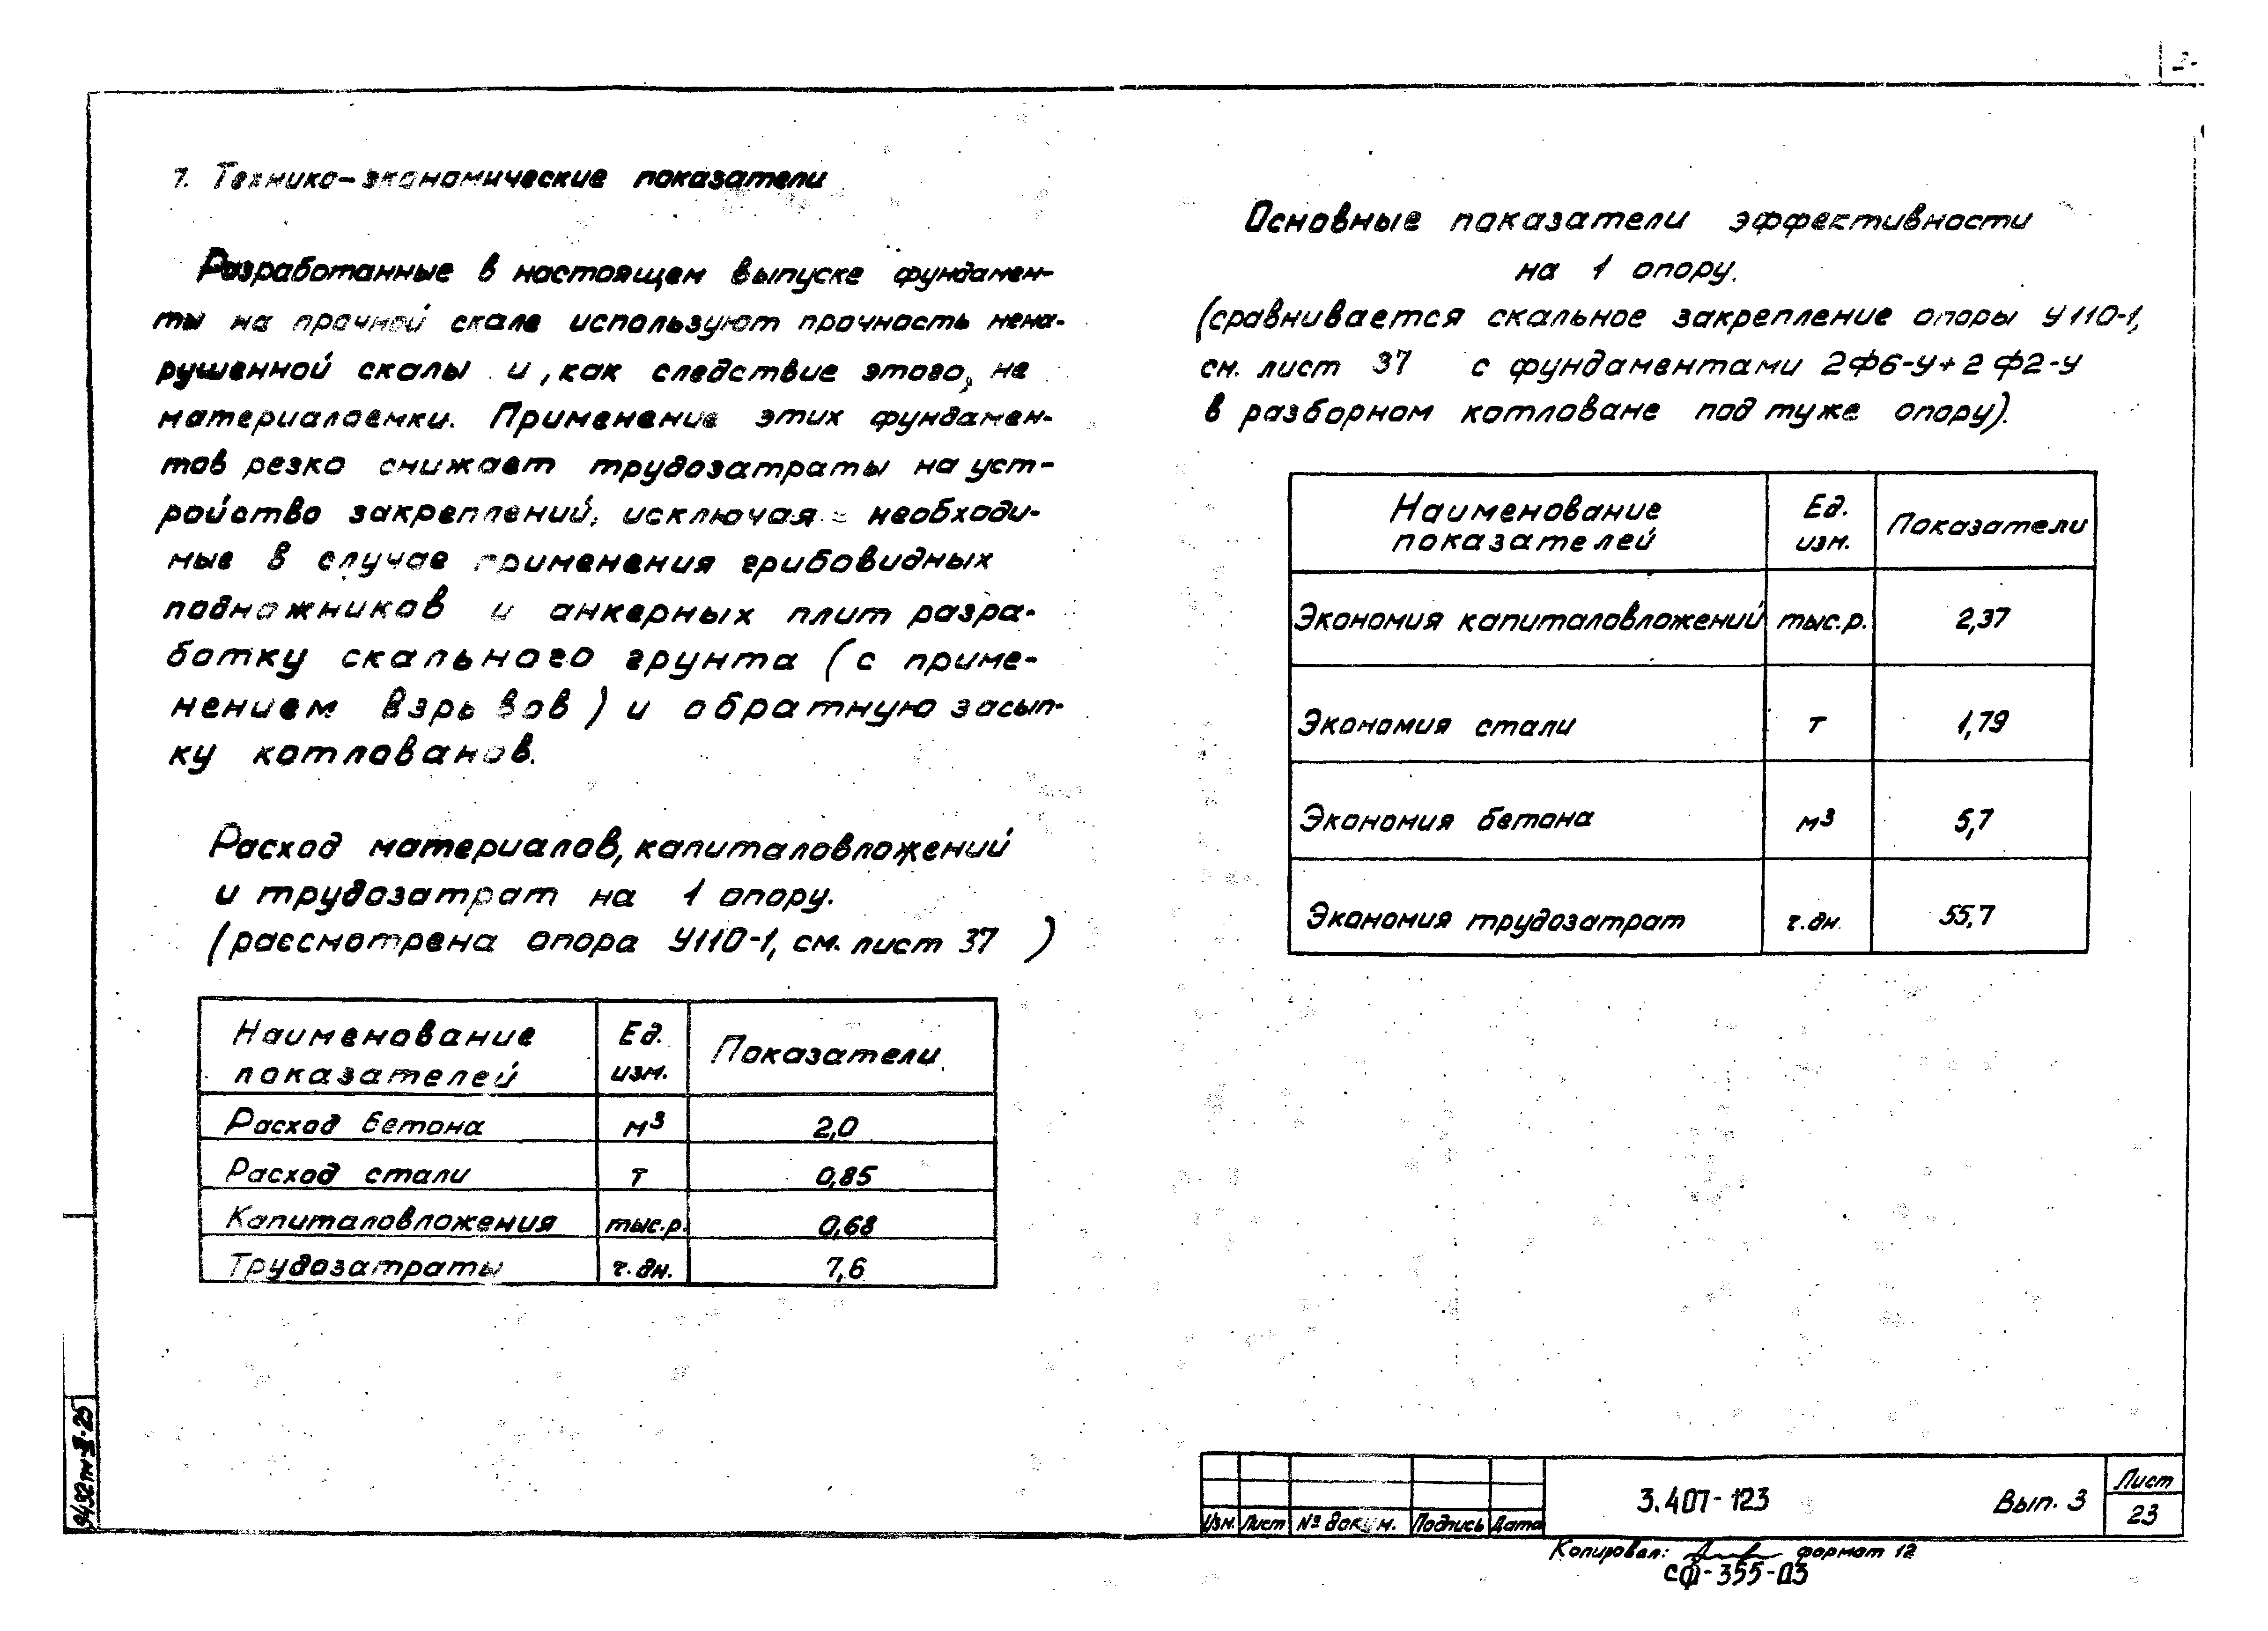 7. Технико-экономические показатели
Разработанные в настоящем выпуске фундамен-
ты на прочной скале используют прочность нена-
рушенной скалы и, как следствие этого, не
материалоемки. Применение этих фундамен-
тов резко снижает трудозатраты на уст-
ройство закреплений, исключая - необходи-
мые в случае применения грибовидных
подножников и анкерных плит разра-
ботку скального грунта (с приме-
нением взрывов) и обратную засып-
ку котлованов.
Расход материалов, капиталовложений
и трудозатрат на 1 опору.
(рассмотрена опора У110-1, см. лист 37 )
Наименование показателей Ед. изм. Показатели
Расход бетона м³ 2,0
Расход стали т 0,85
Капиталовложения тыс.р. 0,68
Трудозатраты ч.дн. 7,6
Основные показатели эффективности
на 1 опору.
(сравнивается скальное закрепление опоры У110-1,
см. лист 37 с фундаментами 2Ф6-У+2Ф2-У
в разборном котловане под туже опору).
Наименование показателей Ед. изм. Показатели
Экономия капиталовложений тыс.р. 2,37
Экономия стали т 1,79
Экономия бетона м³ 5,7
Экономия трудозатрат ч.дн. 55,7
9432тм-III-25
Изм. Лист № докум. Подпись Дата
3.407-123 Вып. 3
Лист
23
Копировал: формат 12
СФ-355-03